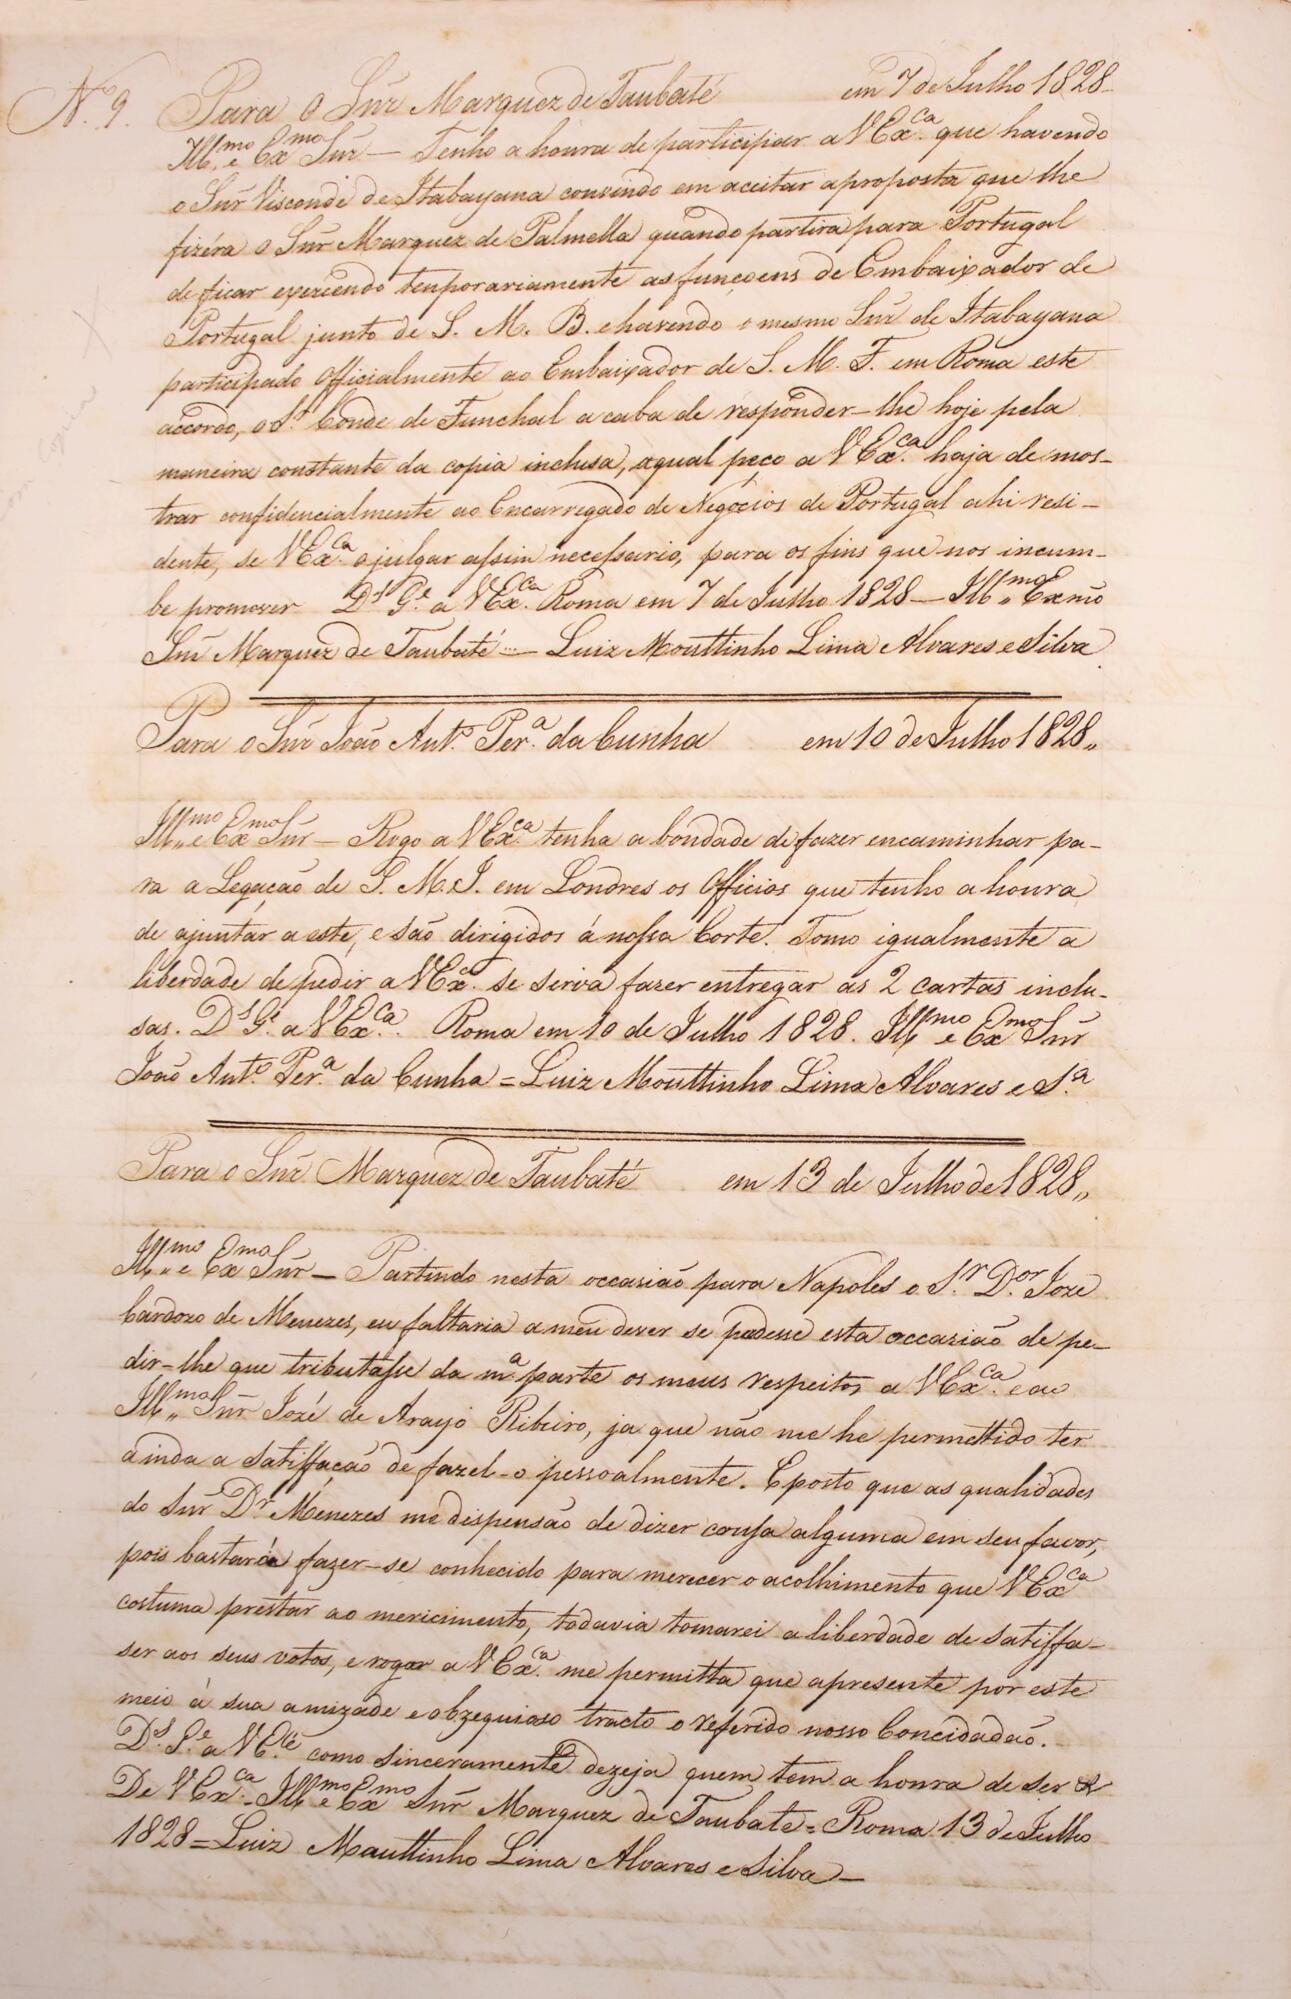 N.º 9. Para o Snr̃ Marquez de Taubaté em 7 de Julho 1828
Ill.mo e Ex.mo Snr̃ — Tenho a honra de participar a VEx.ca que havendo
o Snr̃ Visconde de Itabayana convindo em aceitar a proposta que lhe
fizéra o Snr̃ Marquez de Palmella quando partira para Portugal
de ficar exercendo temporariamente as funçoens de Embaixador de
Portugal junto de S. M. B. e havendo o mesmo Snr̃ de Itabayana
participado Officialmente ao Embaixador de S. M. F. em Roma este
accordo, o S.r Conde de Funchal acaba de responder-lhe hoje pela
maneira constante da copia inclusa, a qual peço a VEx.ca haja de mos-
trar confidencialmente ao Encarregado de Negócios de Portugal ahi resi-
dente, se VEx.ca o julgar assim necessario, para os fins que nos incum-
be promover D.s G.e a VEx.ca Roma em 7 de Julho 1828 — Ill.mo Exmõ
Snr̃ Marquez de Taubaté — Luiz Mouttinho Lima Alvares e Silva
Para o Snr̃ João Ant.º Per.a da Cunha em 10 de Julho 1828„
Ill.mo e Ex.mo Snr̃ — Rogo a VEx.ca tenha a bondade de fazer encaminhar pa-
ra a Legação de S. M. I. em Londres os Officios que tenho a honra
de ajuntar a este, e são dirigidos á nossa Corte. Tomo igualmente a
liberdade de pedir a VEx.c se sirva fazer entregar as 2 cartas inclu-
sas. D.s G.e a VEx.ca. Roma em 10 de Julho 1828. Ill.mo e Ex.mo Snr̃
João Ant.º Per.a da Cunha = Luiz Mouttinho Lima Alvares e S.a
Para o Snr̃ Marquez de Taubaté em 13 de Julho de 1828„
Ill.mo e Ex.mo Snr̃ — Partindo nesta occasião para Napoles o S.r D.or Jozé
Cardozo de Menezes, eu faltaria a meu dever se perdesse esta occasião de pe-
dir-lhe que tributasse da m.a parte os meus respeitos a VEx.ca e ao
Ill.mo Snr̃ Jozé de Araujo Ribeiro, ja que não me he permettido ter
ainda a satisfacão de fazel-o pessoalmente. E posto que as qualidades
do Snr̃ D.r Menezes me dispensão de dizer cousa alguma em seu favor,
pois bastará fazer-se conhecido para merecer o acolhimento que VEx.ca
costuma prestar ao mericimento, todavia tomarei a liberdade de satisfa-
ser aos seus votos, e rogar a VEx.ca me permitta que apresente por este
meio á sua amizade e obzequioso tracto o referido nosso Concidadão.
D.s G.e a VE.ca como sinceramente dezeja quem tem a honra de ser &
De VEx.ca — Ill.mo e Ex.mo Snr̃ Marquez de Taubate = Roma 13 de Julho
1828 = Luiz Mouttinho Lima Alvares e Silva —